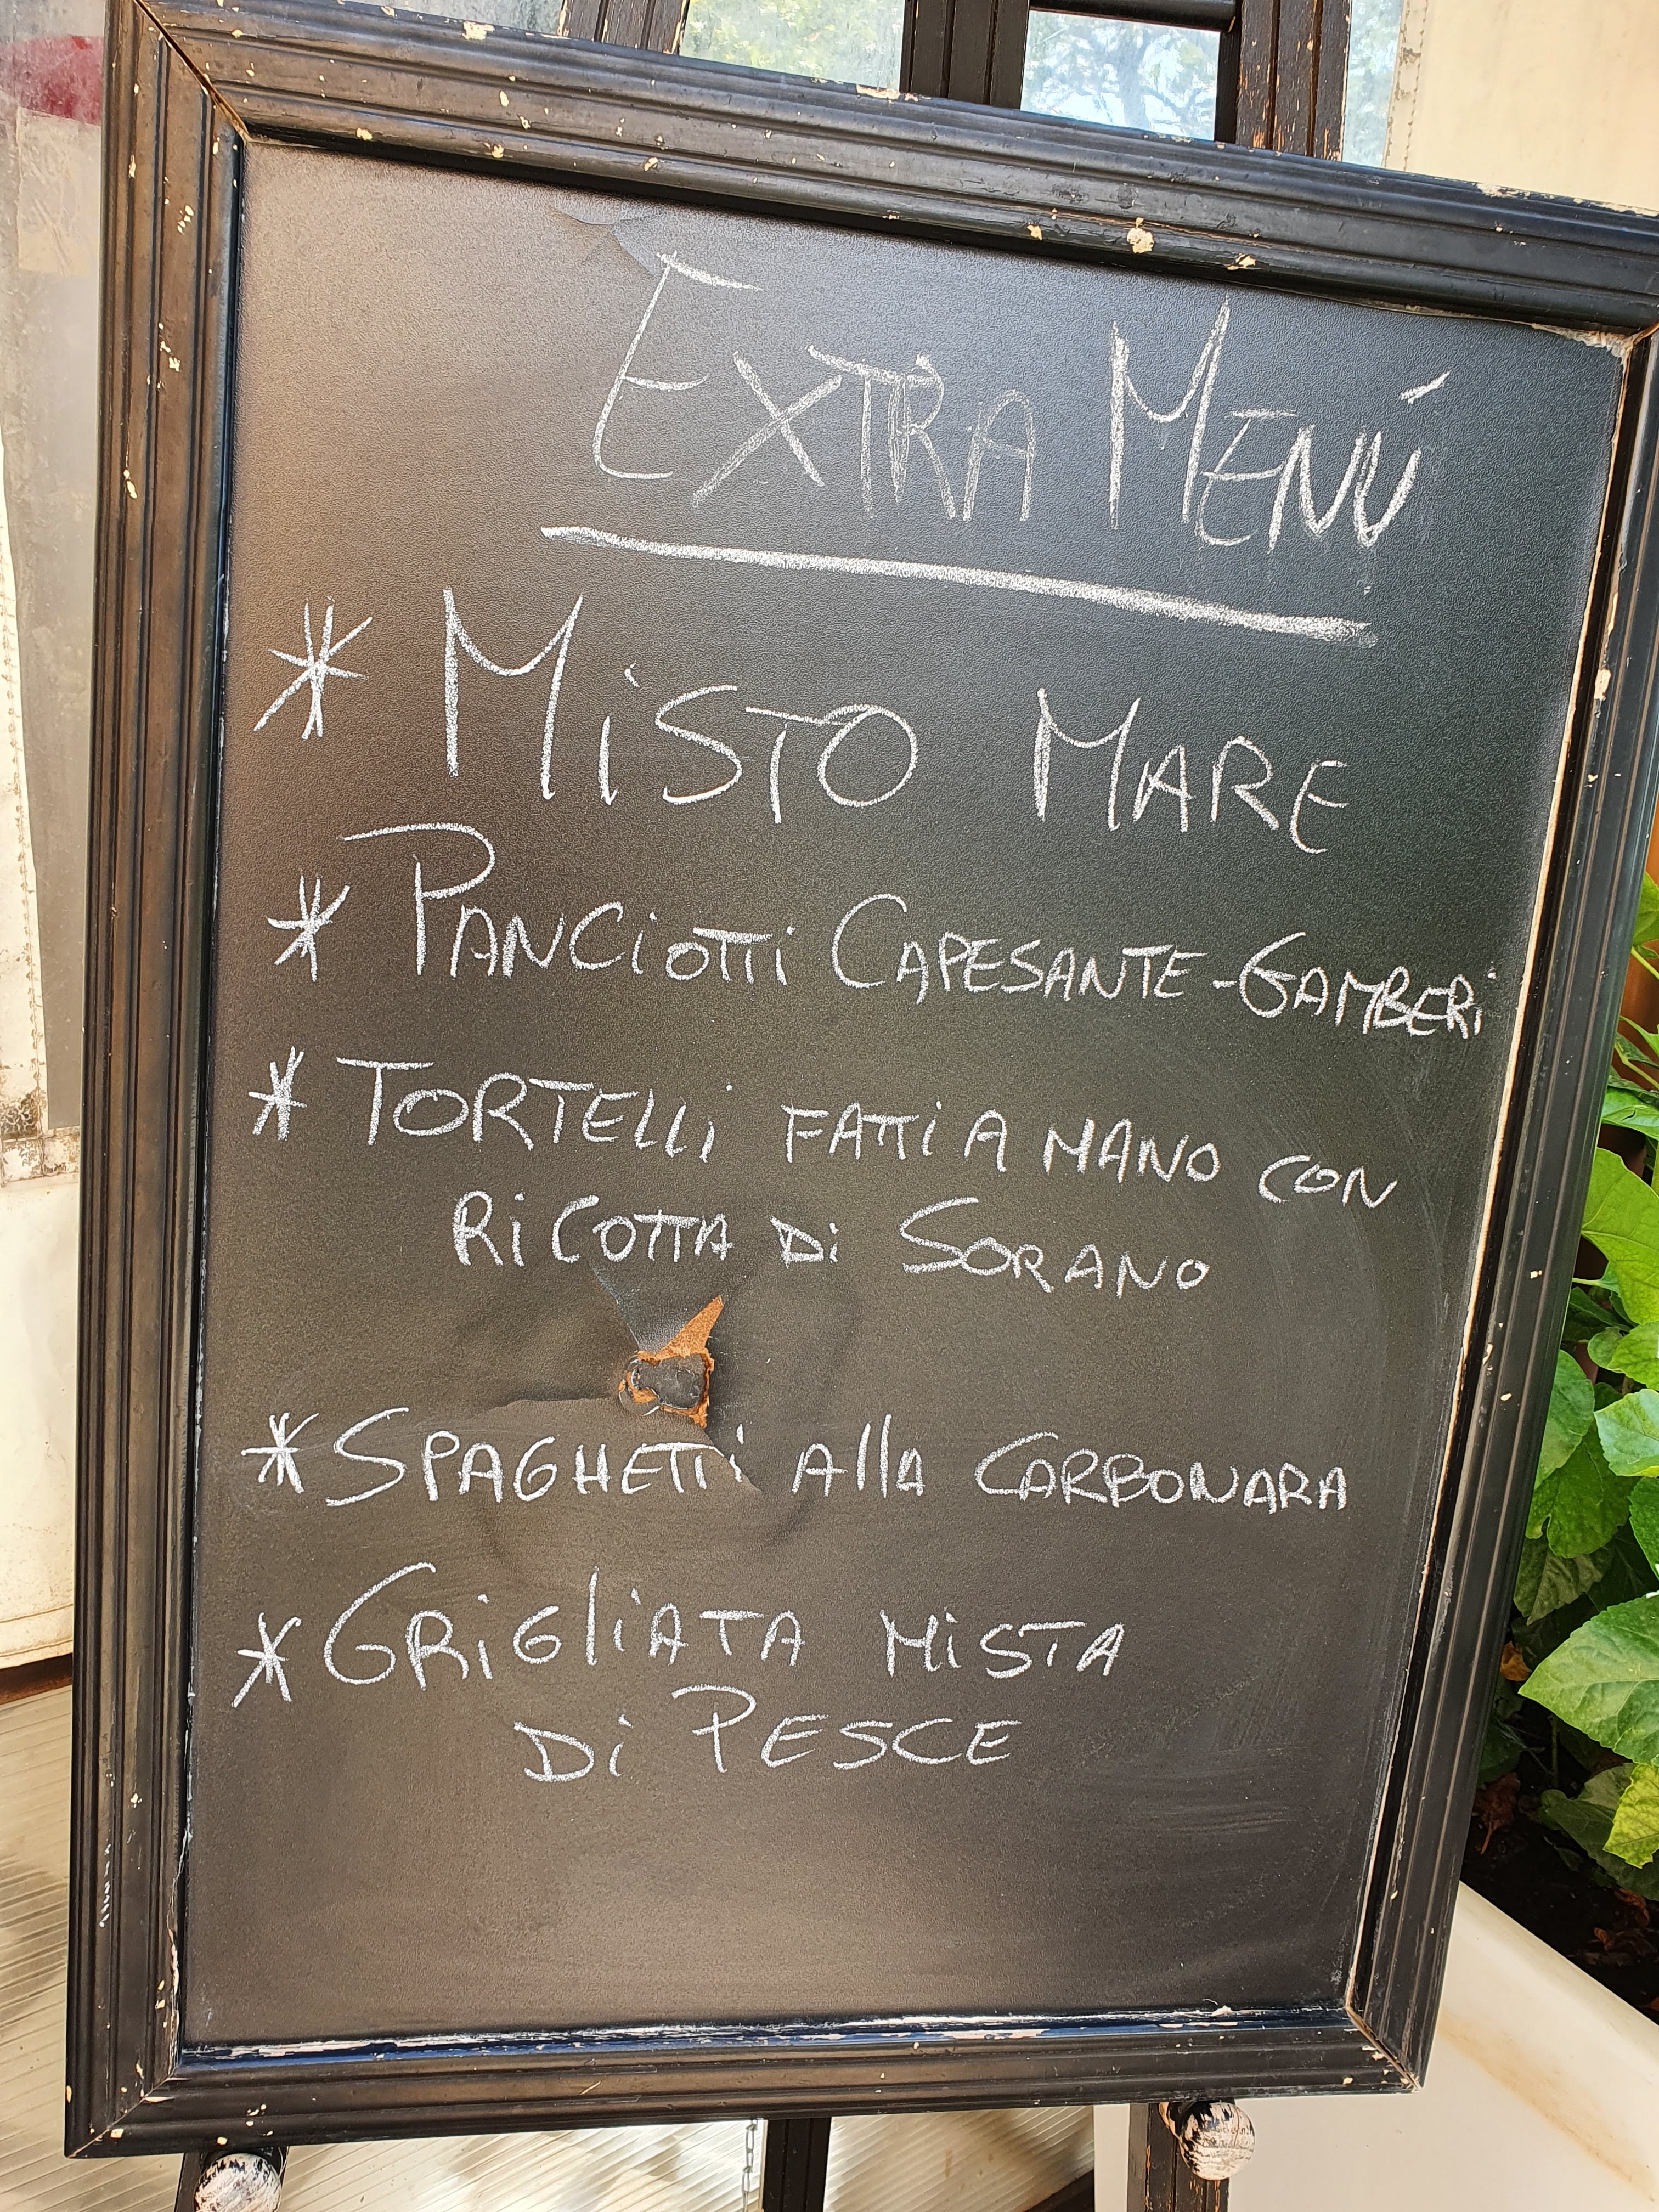 EXTRA MENÚ
* MiSTO MARE
* PANCiOTTi CAPESANTE-GAMBERi
* TORTElli FATTi A MANO CON
RiCOTTA Di SORANO
* SPAGHETTi AllA CARBONARA
* GRiGliATA MiSTA
Di PESCE